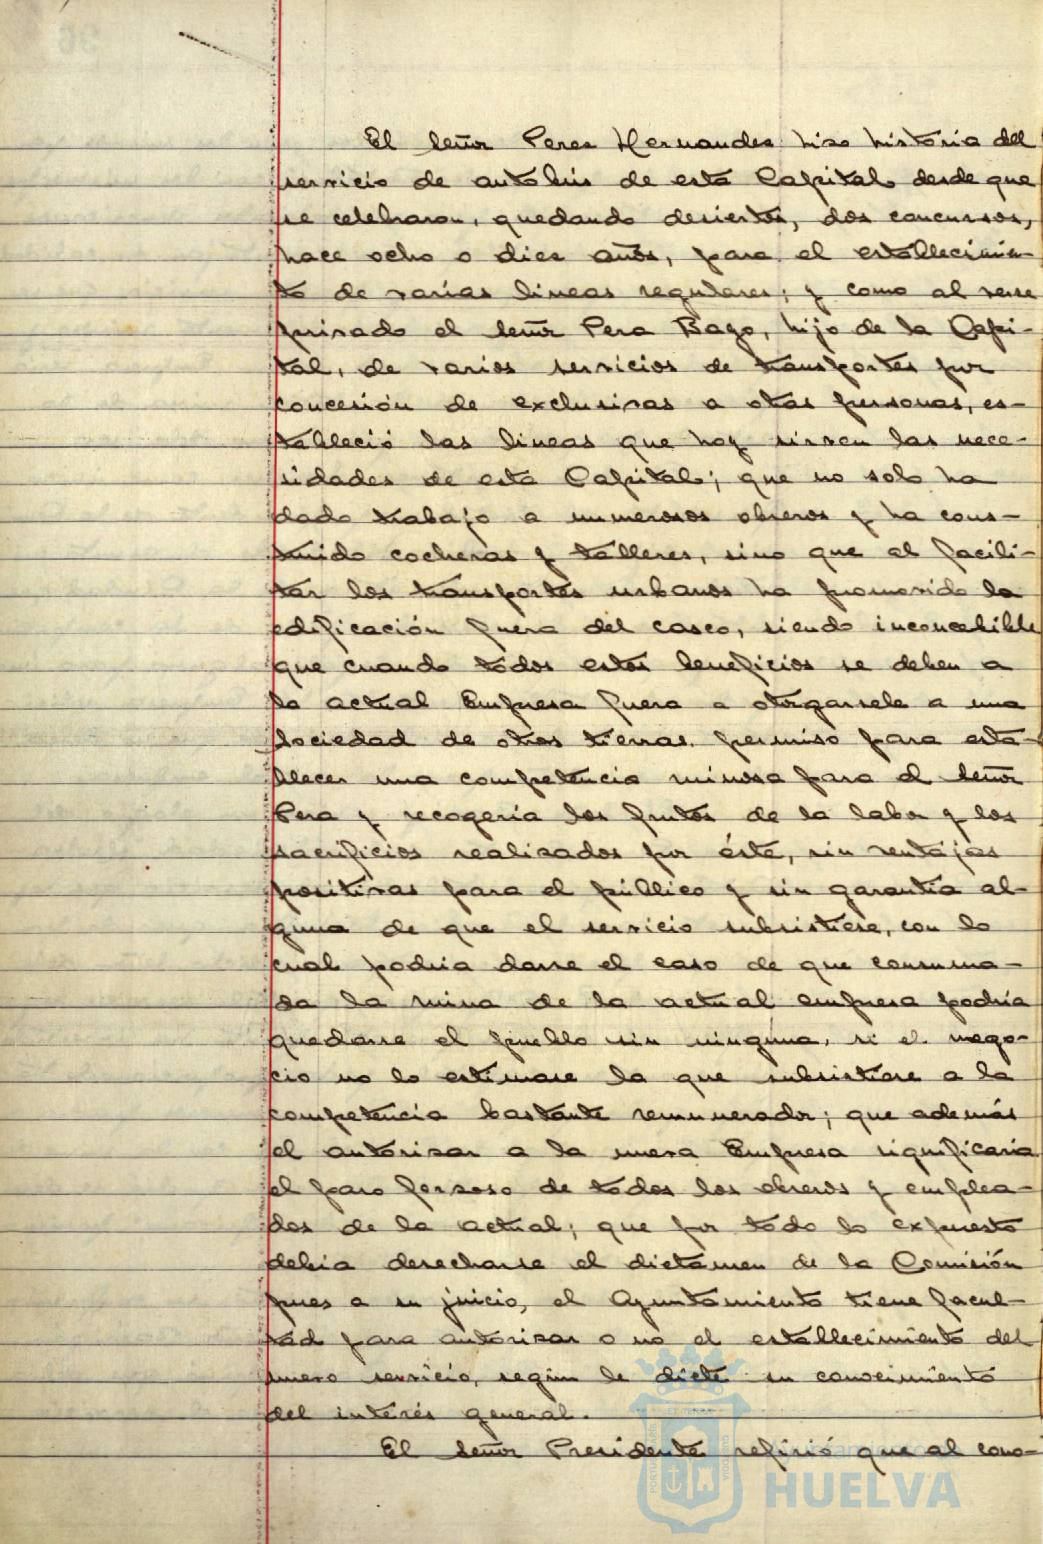 El señor Perez Hernandez hizo historia del
servicio de autobús de esta Capital, desde que
se celebraron, quedando desiertos, dos concursos,
hace ocho o diez años, para el establecimien-
to de varias lineas regulares; y como al verse
privado el señor Pera Bago, hijo de la Capi-
tal, de varios servicios de transportes por
concesión de exclusivas a otras personas, es-
tableció las lineas que hoy sirven las nece-
sidades de esta Capital; que no solo ha
dado trabajo a numerosos obreros y ha cons-
truido cocheras y talleres, sino que al facili-
tar los transportes urbanos ha promovido la
edificación fuera del casco, siendo inconcebible
que cuando todos estos beneficios se deben a
la actual Empresa fuera a otorgarsele a una
Sociedad de otras tierras permiso para esta-
blecer una competencia ruinosa para el señor
Pera y recogería los frutos de la labor y los
sacrificios realizados por éste, sin ventajas
positivas para el público y sin garantía al-
guna de que el servicio subsistiese, con lo
cual podria darse el caso de que consuma-
da la ruina de la actual empresa podría
quedarse el pueblo sin ninguna, si el nego-
cio no lo estimase la que subsistiese a la
competencia bastante remunerador; que además
el autorizar a la nueva Empresa significaría
el paro forzoso de todos los obreros y emplea-
dos de la actual; que por todo lo expuesto
debia desecharse el dictamen de la Comisión
pues a su juicio, el Ayuntamiento tiene facul-
tad para autorizar o no el establecimiento del
nuevo servicio, según le dicte su conocimiento
del interés general.
El señor Presidente refirió que al cono-
HUELVA